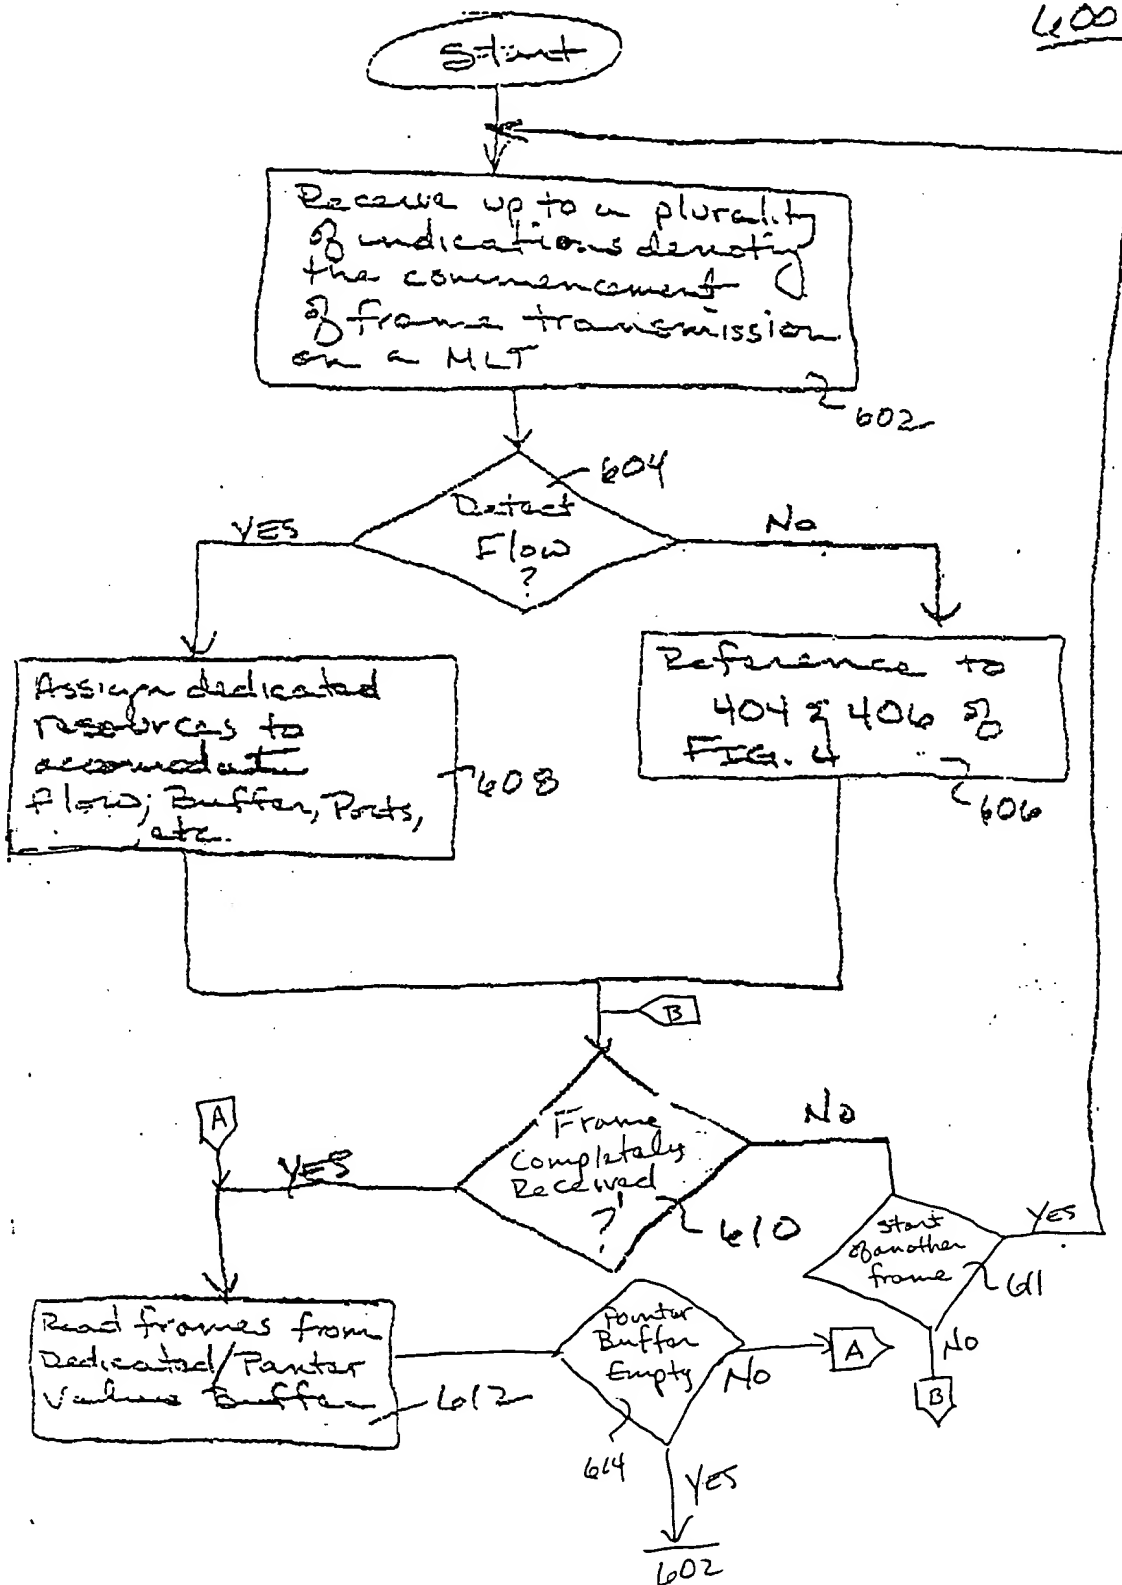 600
Start
Receive up to a plurality
of indications denoting
the commencement
of frame transmission
on a MLT
602
604
Detect
Flow
?
YES
No
Assign dedicated
resources to
accomodate
flow; Buffer, Ports,
etc.
608
Reference to
404 & 406 of
FIG. 4
606
B
A
Frame
Completely
Received
?
YES
No
610
start
of another
frame
YES
611
No
B
Read frames from
Dedicated/Pointer
Values Buffer
612
Pointer
Buffer
Empty
No
A
614
YES
602